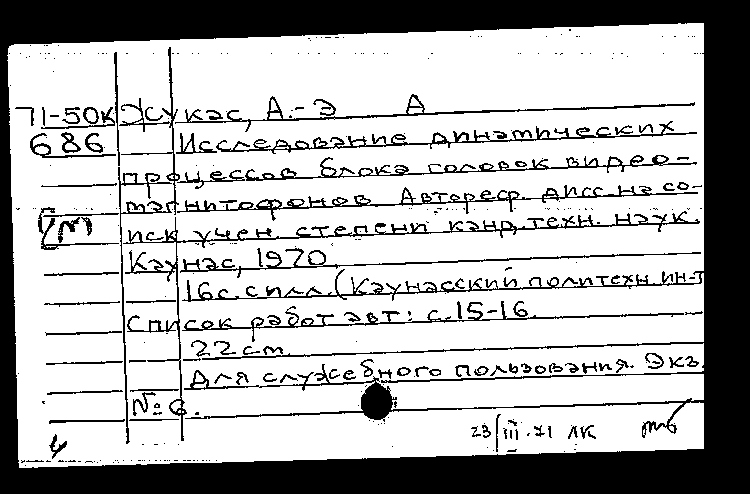 71-50к Жукас, А.-Э А
686 Исследование динамических
процессов блока головок видео-
магнитофонов. Автореф. дисс. на со-
иск. учен. степени канд. техн. наук.
Каунас, 1970.
16 с. с илл. (Каунасский политехн. ин-т
Список работ авт: с. 15-16.
22 см.
Для служебного пользования. Экз.
№ 6.
23/III-71 ЛК